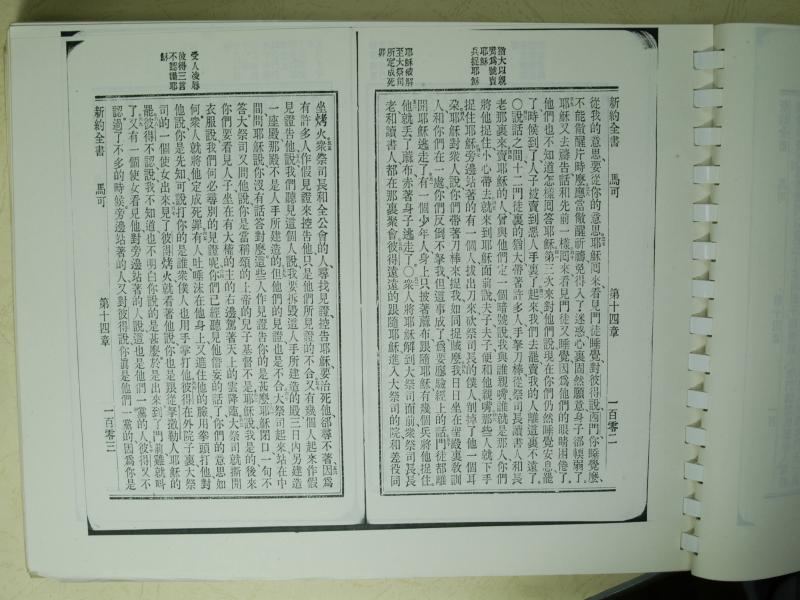 新約全書 馬可 第十四章 一百零二
猶大以親
嘴爲號賣
耶穌
兵捉耶穌
耶穌被解
至大祭司
所定成死
罪
從我的意思、要從你的意思、耶穌囘來看見門徒睡覺、對彼得說、西門、你睡覺麼、
不能儆醒片時麼、應當儆醒祈禱、免得入了迷惑、心裏固然願意、身子卻輭弱了、
耶穌又去禱告、話和先前一樣、囘來看見門徒又睡覺、因爲他們的眼睛困倦了、
他們也不知道怎樣囘答、耶穌第三次來、對他們說、現在你們仍然睡覺安息罷、
了、時候到了、人子被賣到惡人手裏了、起來、我們去罷、賣我的人離這裏不遠了、
○說話之間、十二門徒裏的猶大、帶著許多人、手拏刀棒、從祭司長讀書人和長
老那裏來、賣耶穌的人、曾與他們定一個暗號、說、我與誰親嘴、誰就是那人、你們
將他捉住、小心帶去、就來到耶穌面前說、夫子、夫子、便和他親嘴、那些人就下手
捉住耶穌、旁邊站著的有一個人、拔出刀來、砍祭司長的僕人、削掉了他一個耳
朶、耶穌對衆人說、你們帶著刀棒來捉我、如同捉賊麼、我日日坐在聖殿裏教訓
人、和你們在一處、你們反倒不拏我、但這事成了、爲要應驗經上的話、門徒都離
開耶穌逃走了、有一個少年人、身上只披著蔴布、跟隨耶穌、有幾個兵將他捉住、
他就丟了蔴布、赤著身子逃走了、○衆人將耶穌解到大祭司面前、衆祭司長長
老和讀書人、都在那裏聚會、彼得遠遠的跟隨耶穌、進入大祭司的院、和差役同
受人凌辱
彼得三言
不認識耶
穌
坐烤火、衆祭司長和全公會的人、尋找見證、控告耶穌、要治死他、卻尋不著、因爲
有許多人作假見證來控告他、只是他們所見證的不合、又有幾個人起來作假
見證告他說、我們聽見這個人說、我要拆毀這人手所建造的殿、三日內另建造
一座殿、那殿不是人手所建造的、但他們的見證也是不合、大祭司起來站在中
間、問耶穌說、你沒有話答對麼、這些人作見證告你的是甚麼、耶穌閉口一句不
答、大祭司又問他說、你是當稱頌的上帝的兒子基督不是、耶穌說、我是的、後來
你們要看見人子、坐在有大權的主的右邊、駕著天上的雲降臨、大祭司就撕開
衣服說、我們何必尋別的見證呢、你們已經聽見他僭妄的話了、你們的意思如
何、衆人就將他定成死罪、有人吐唾沫在他身上、又遮住他的臉、用拳頭打他、對
他說、你是先知、可說打你的是誰、衆僕人也用手掌打他、彼得在外院子裏、大祭
司的一個使女出來、見了彼得烤火、就看著他說、你也是跟從拏撒勒人耶穌的
罷、彼得不認、說、我不知道、也不明白你說的是甚麼、於是出來到了門前、雞就叫
了、又有一個使女看見他、對旁邊站著的人說、這也是他們一黨的人、彼得又不
認、過了不多的時候、旁邊站著的人又對彼得說、你眞是他們一黨的、因爲你是
新約全書 馬可 第十四章 一百零三